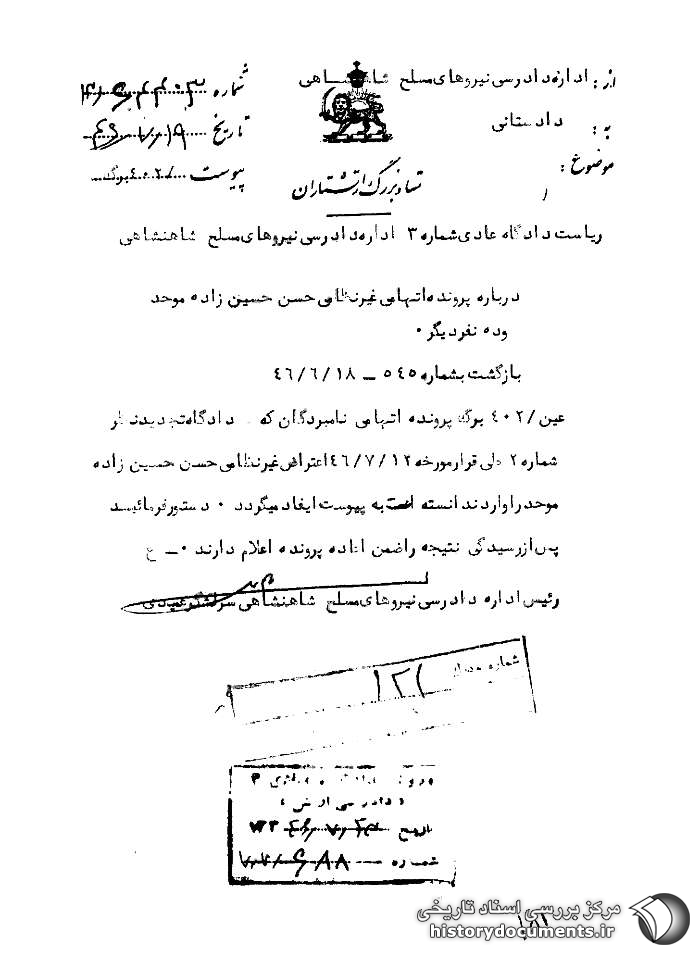 از: اداره دادرسی نیروهای مسلح شاهنشاهی
به: دادستانی
موضوع:
شماره
تاریخ
پیوست ۴۰۲/ برگ
ستاد بزرگ ارتشتاران
ریاست دادگاه عادی شماره ۳ اداره دادرسی نیروهای مسلح شاهنشاهی
درباره پرونده اتهامی غیرنظامی حسن حسین زاده موحد
وده نفر دیگر ۰
بازگشت بشماره ۵۴۵ – ۴۶/۶/۱۸
عین /۴۰۲ برگ پرونده اتهامی نامبردگان که دادگاه تجدیدنظر
شماره ۲ طی قرار مورخه ۴۶/۷/۱۲ اعتراض غیرنظامی حسن حسین زاده
موحد را وارد ندانسته است به پیوست ایفاد میگردد ۰ دستور فرمائید
پس از رسیدگی نتیجه را ضمن اعاده پرونده اعلام دارند ۰ – ع
رئیس اداره دادرسی نیروهای مسلح شاهنشاهی سرلشگر
شماره
۱۲۱
دادرسی ارتش
تاریخ
شماره
مرکز بررسی اسناد تاریخی
historydocuments.ir